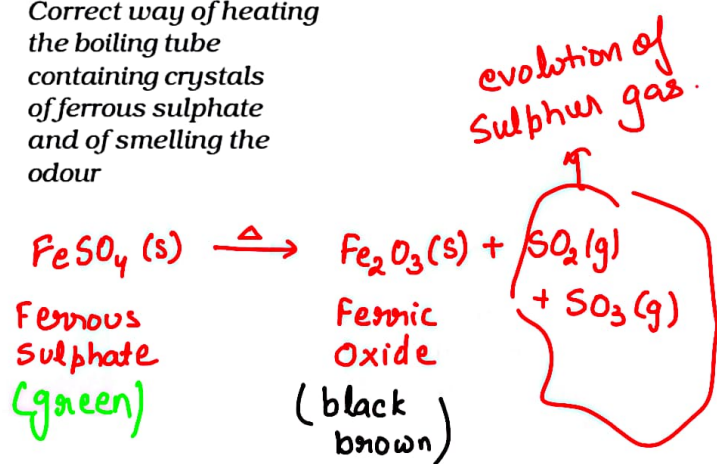 Correct way of heating
the boiling tube
containing crystals
of ferrous sulphate
and of smelling the
odour
evolution of
Sulphur gas.
FeSO₄ (s) —Δ→ Fe₂O₃(s) + SO₂(g)
+ SO₃(g)
Ferrous
Sulphate
(green)
Ferric
Oxide
(black
brown)